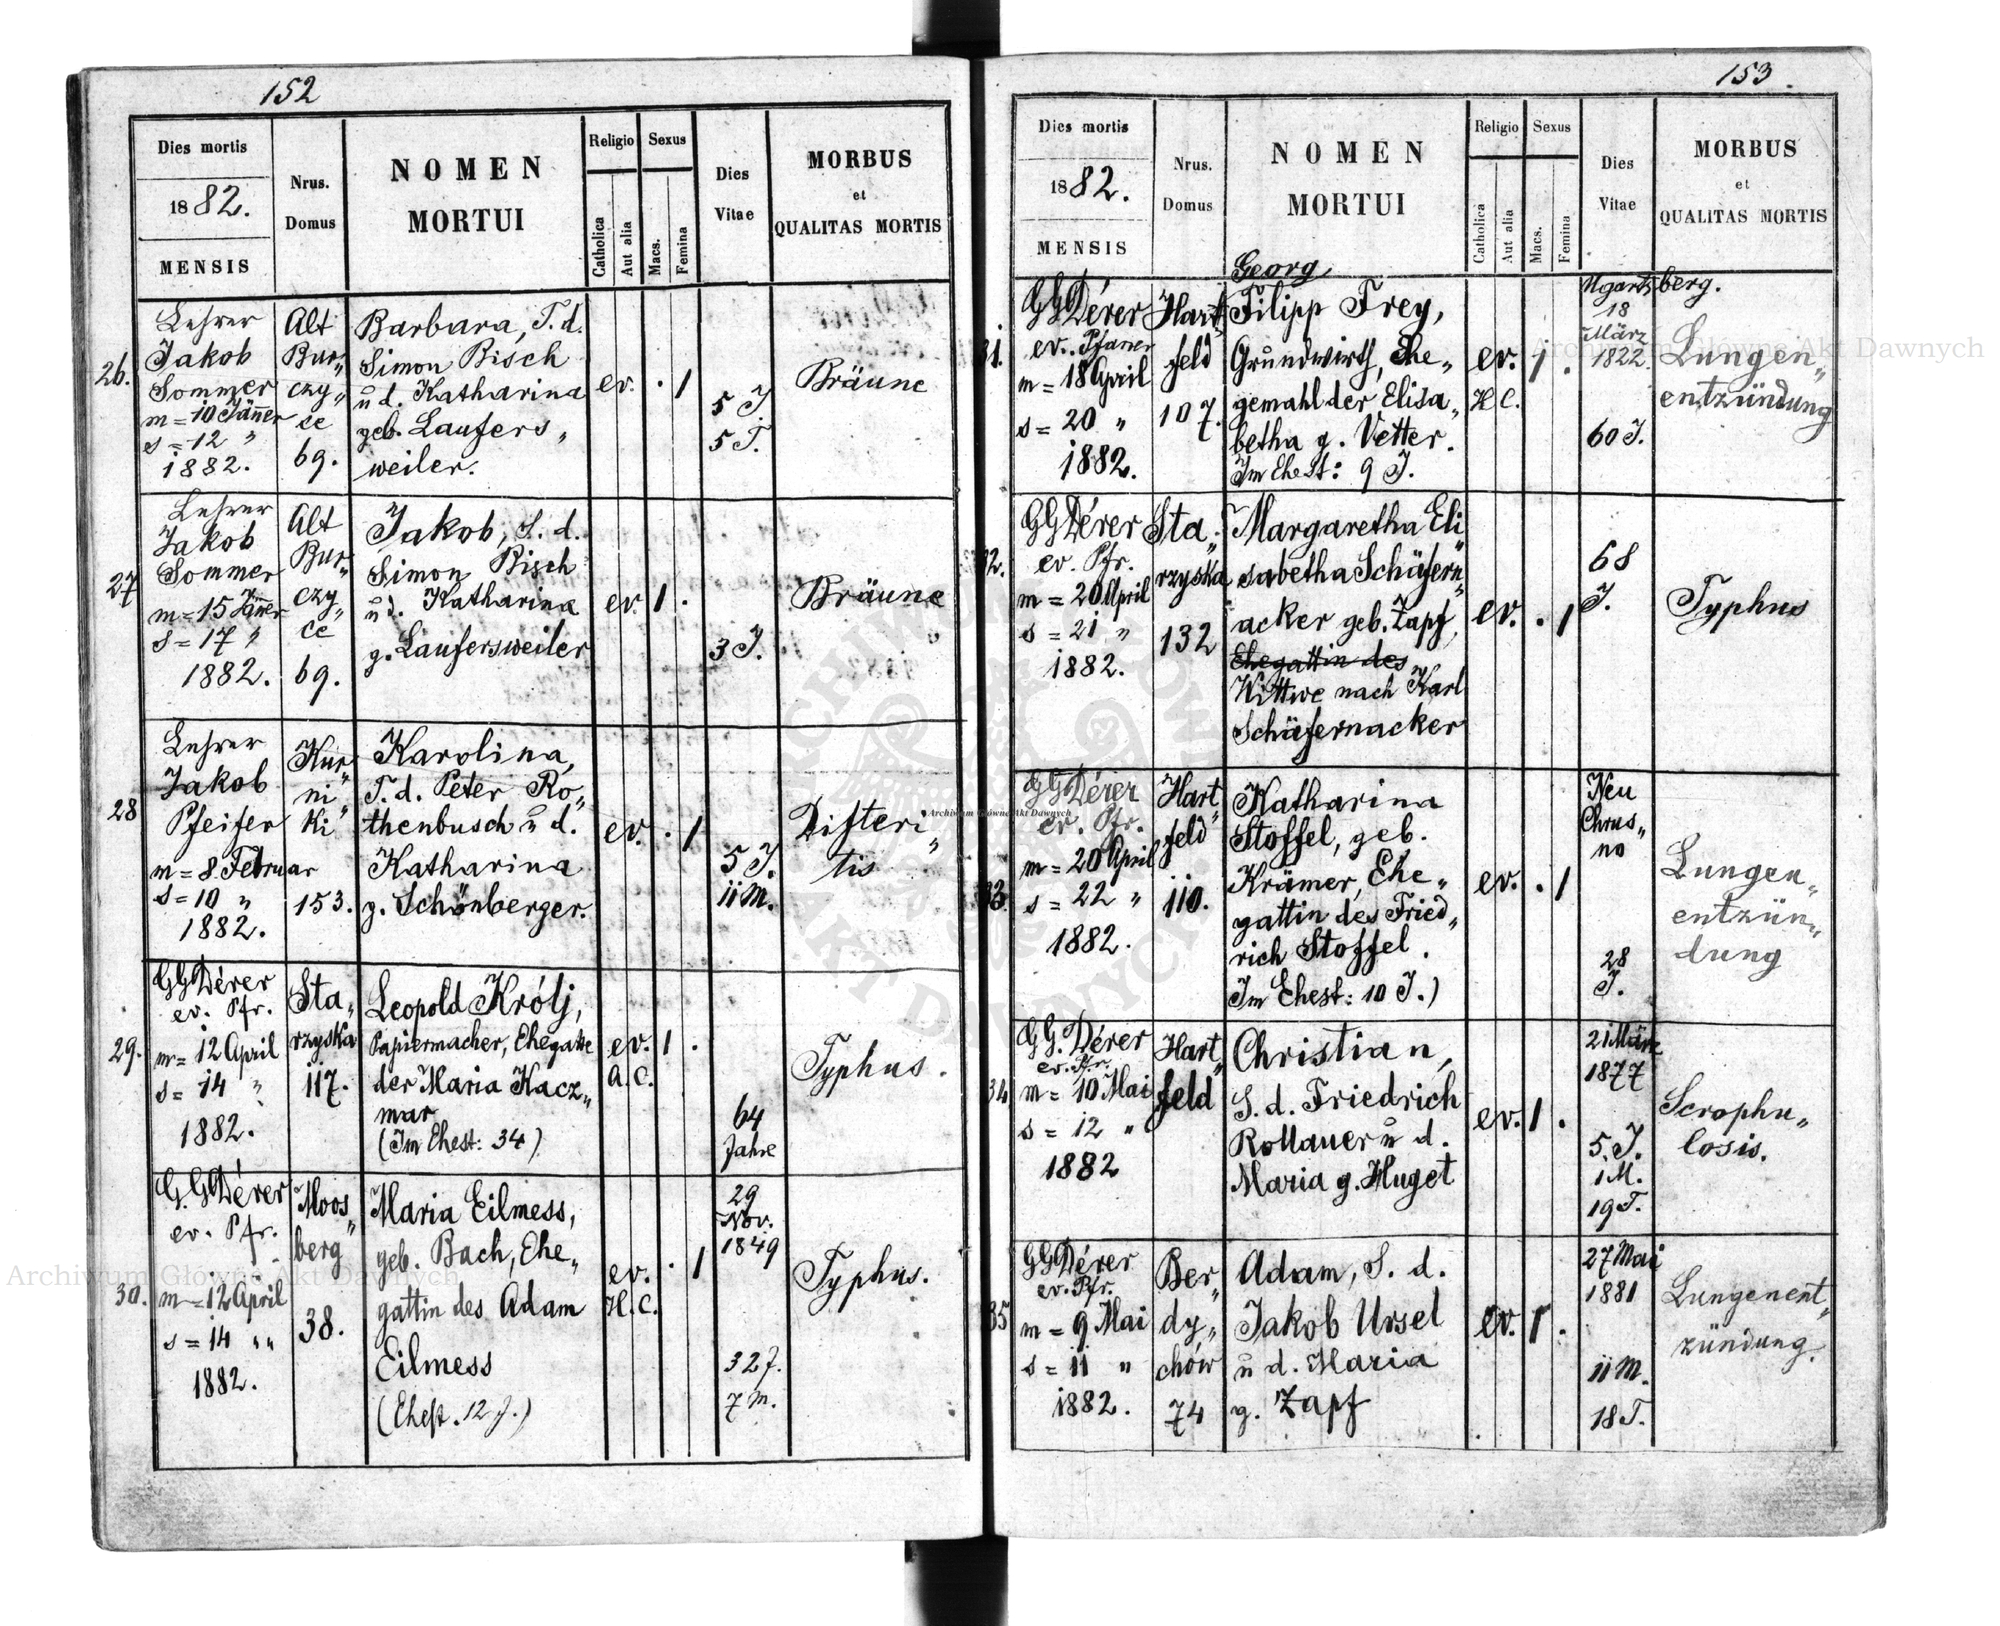 152
Dies mortis
1882.
MENSIS
Nrus.
Domus
NOMEN
MORTUI
Religio
Catholica
Aut alia
Sexus
Macs.
Femina
Dies
Vitae
MORBUS
et
QUALITAS MORTIS
26.
Lehrer
Jakob
Sommer
m = 10 Jänner
s = 12 "
1882.
Alt
Bur„
czy„
ce
69.
Barbara, T. d.
Simon Bisch
u d. Katharina
geb. Laufers„
weiler.
ev.
. 1
5 J.
5 T.
Bräune
27
Lehrer
Jakob
Sommer
m = 15 Jänner
s = 17 "
1882.
Alt
Bur„
czy„
ce
69.
Jakob, S. d.
Simon Bisch
u d. Katharina
g. Laufersweiler
ev.
1 .
3 J.
Bräune
28
Lehrer
Jakob
Pfeifer
m = 8. Februar
s = 10 "
1882.
Kur„
ni„
ki
153.
Karolina,
T. d. Peter Ro„
thenbusch u d.
Katharina
g. Schönberger.
ev.
. 1
5 J.
11 M.
Difteri„
tis
29.
GG Dérer
ev. Pfr.
m = 12 April
s = 14 "
1882.
Sta„
rzyska
117.
Leopold Królj,
Papiermacher, Ehegatte
der Maria Kacz„
mar
(Im Ehest: 34)
ev.
A. C.
1 .
64
Jahre
Typhus.
30.
G. G Dérer
ev. Pfr.
m = 12 April
s = 14 "
1882.
Moos„
berg
38.
Maria Eilmess,
geb. Bach, Ehe„
gattin des Adam
Eilmess
(Ehest. 12 J.)
ev.
H. C.
. 1
29
Nov.
1849
32 J.
7 M.
Typhus.
153.
Dies mortis
1882.
MENSIS
Nrus.
Domus
NOMEN
MORTUI
Religio
Catholica
Aut alia
Sexus
Macs.
Femina
Dies
Vitae
MORBUS
et
QUALITAS MORTIS
31.
GG Dérer
ev. Pfarrer
m = 18 April
s = 20 "
1882.
Hart„
feld
107.
Georg
Filipp Frey,
Grundwirth, Ehe„
gemahl der Elisa„
betha g. Vetter.
Im Ehest: 9 J.
ev.
H C.
1 .
Ugartsberg.
18
März
1822.
60 J.
Lungen„
entzündung
32.
GG Dérer
ev. Pfr.
m = 20 April
s = 21 "
1882.
Sta„
rzyska
132
Margaretha Eli„
sabetha Schäfern„
acker geb. Zapf,
Ehegattin des
Wittwe nach Karl
Schäfernacker
ev.
. 1
68
J.
Typhus
33.
GG Dérer
ev. Pfr.
m = 20 April
s = 22 "
1882.
Hart„
feld
110.
Katharina
Stoffel, geb.
Krämer, Ehe„
gattin des Fried„
rich Stoffel.
Im Ehest: 10 J.)
ev.
. 1
Neu
Chrus„
no
28
J.
Lungen„
entzün„
dung
34
GG. Dérer
ev. Pfr.
m = 10 Mai
s = 12 "
1882
Hart„
feld
Christian,
S. d. Friedrich
Rollauer u d.
Maria g. Huget
ev.
1 .
21 März
1877
5. J.
1 M.
19 T.
Scrophu„
losis.
35
GG Dérer
ev. Pfr.
m = 9 Mai
s = 11 "
1882.
Ber„
dy„
chów
74
Adam, S. d.
Jakob Ursel
u d. Maria
g. Zapf
ev.
1 .
27 Mai
1881
11 M.
18 T.
Lungenent„
zündung.
Archiwum Główne Akt Dawnych
Archiwum Główne Akt Dawnych
Archiwum Główne Akt Dawnych